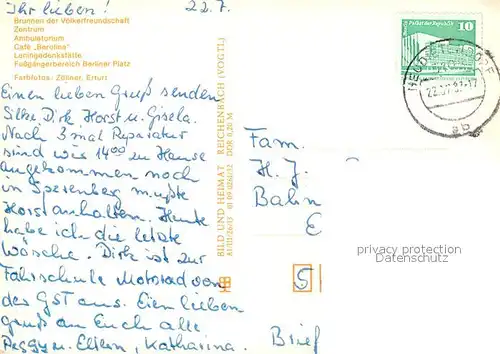 Ihr lieben! 22.7.
Brunnen der Völkerfreundschaft
Zentrum
Ambulatorium
Café „Berolina"
Leningedenkstätte
Fußgängerbereich Berliner Platz
Farbfotos: Zöllner, Erfurt
Einen lieben Gruß senden
Silke, Dirk, Horst u. Gisela.
Nach 3 mal Reparatur
sind wir 14⁰⁰ zu Hause
angekommen noch
in Sperenberg mußte
Horst anhalten. Heute
habe ich die letzte
Wäsche. Dirk ist zur
Fahrschule Motorrad von
der GST aus. Einen lieben
gruß an Euch alle
Peggy u. Eltern, Katharina.
BILD UND HEIMAT REICHENBACH (VOGTL)
DDR 0,20 M
10
Palast der Republik
22.07.87-17
ab
Fam.
H. J.
Bahn
E
privacy protection
Datenschutz
5
Brief